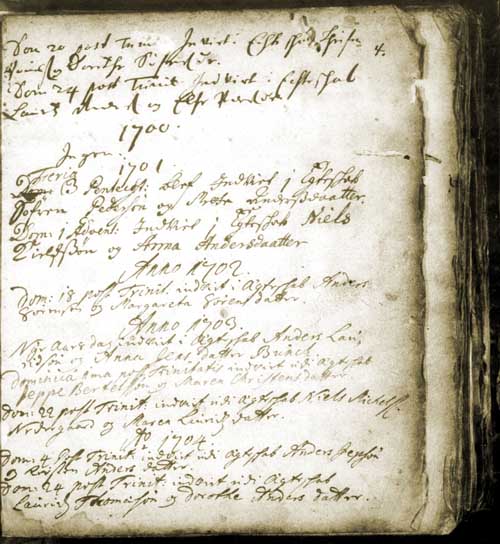 Dom 20 post Trinit: Indviet i Echteschab
4.
og Dorithe
Dom 24 post Trinit Indviet i Echteschab
Lauritz og Else
1700.
Ingen
1701
Feria 3 Pentecost: blef Indviet i Egteschab
Søfren Pedersøn og Mette Andersdaatter.
Dom: 1 Advent: Indviet i Egteschab Niels
og Anna Andersdaatter
Anno 1702.
Dom: 18 post Trinit. indviet i Ægteschab Anders
Sørensøn og Margareta Sörens datter.
Anno 1703.
Nÿt Aars dag indviet i Ægteschab Anders Lau¬
ridsøn og Anna Jens datter Bunch
Dominica ima post Trinitatis indviet udi Ægteschab
Jeppe Bertelssøn og Maren Christens datter.
Dom: 22 post Trinit: indviet udi Ægteschab Niels Michelss.
Nedergaard og Maren Lauritz datter.
Ao 1704.
Dom: 4 post Trinit: indviet udi Ægteschab Anders Jepsøn
og Kirsten Anders datter.
Dom: 24 post Trinit: indviet udi Ægteschab
Lauritz Thomesøn og Dorothe Anders datter.